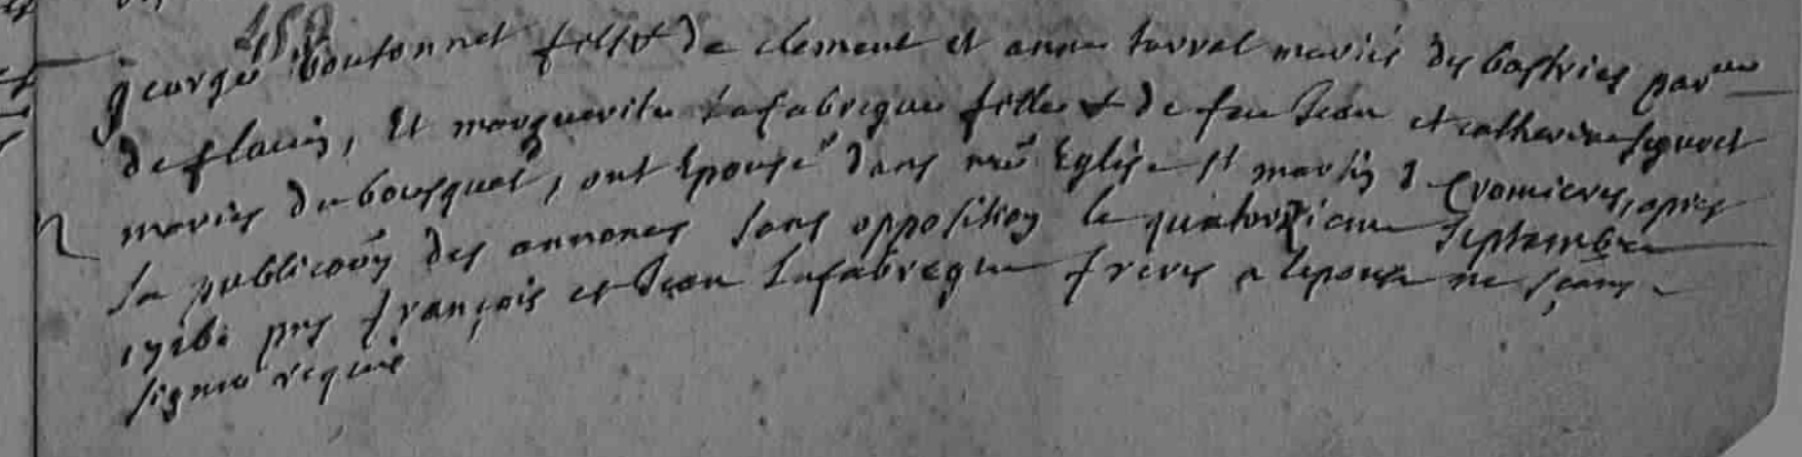 george boutonnet fils de clement et anne torrel mariés des bastries par
de flaviy, Et marguerite Lafabregue fille de feu Jean et catherine
mariés du bousquet, ont Epousé dans Eglise St martin après
la publicaon des annonces sans opposition le quatorzieme septembre
pns françois et Jean Lafabregue freres a lepouse ne sçans
signer requis